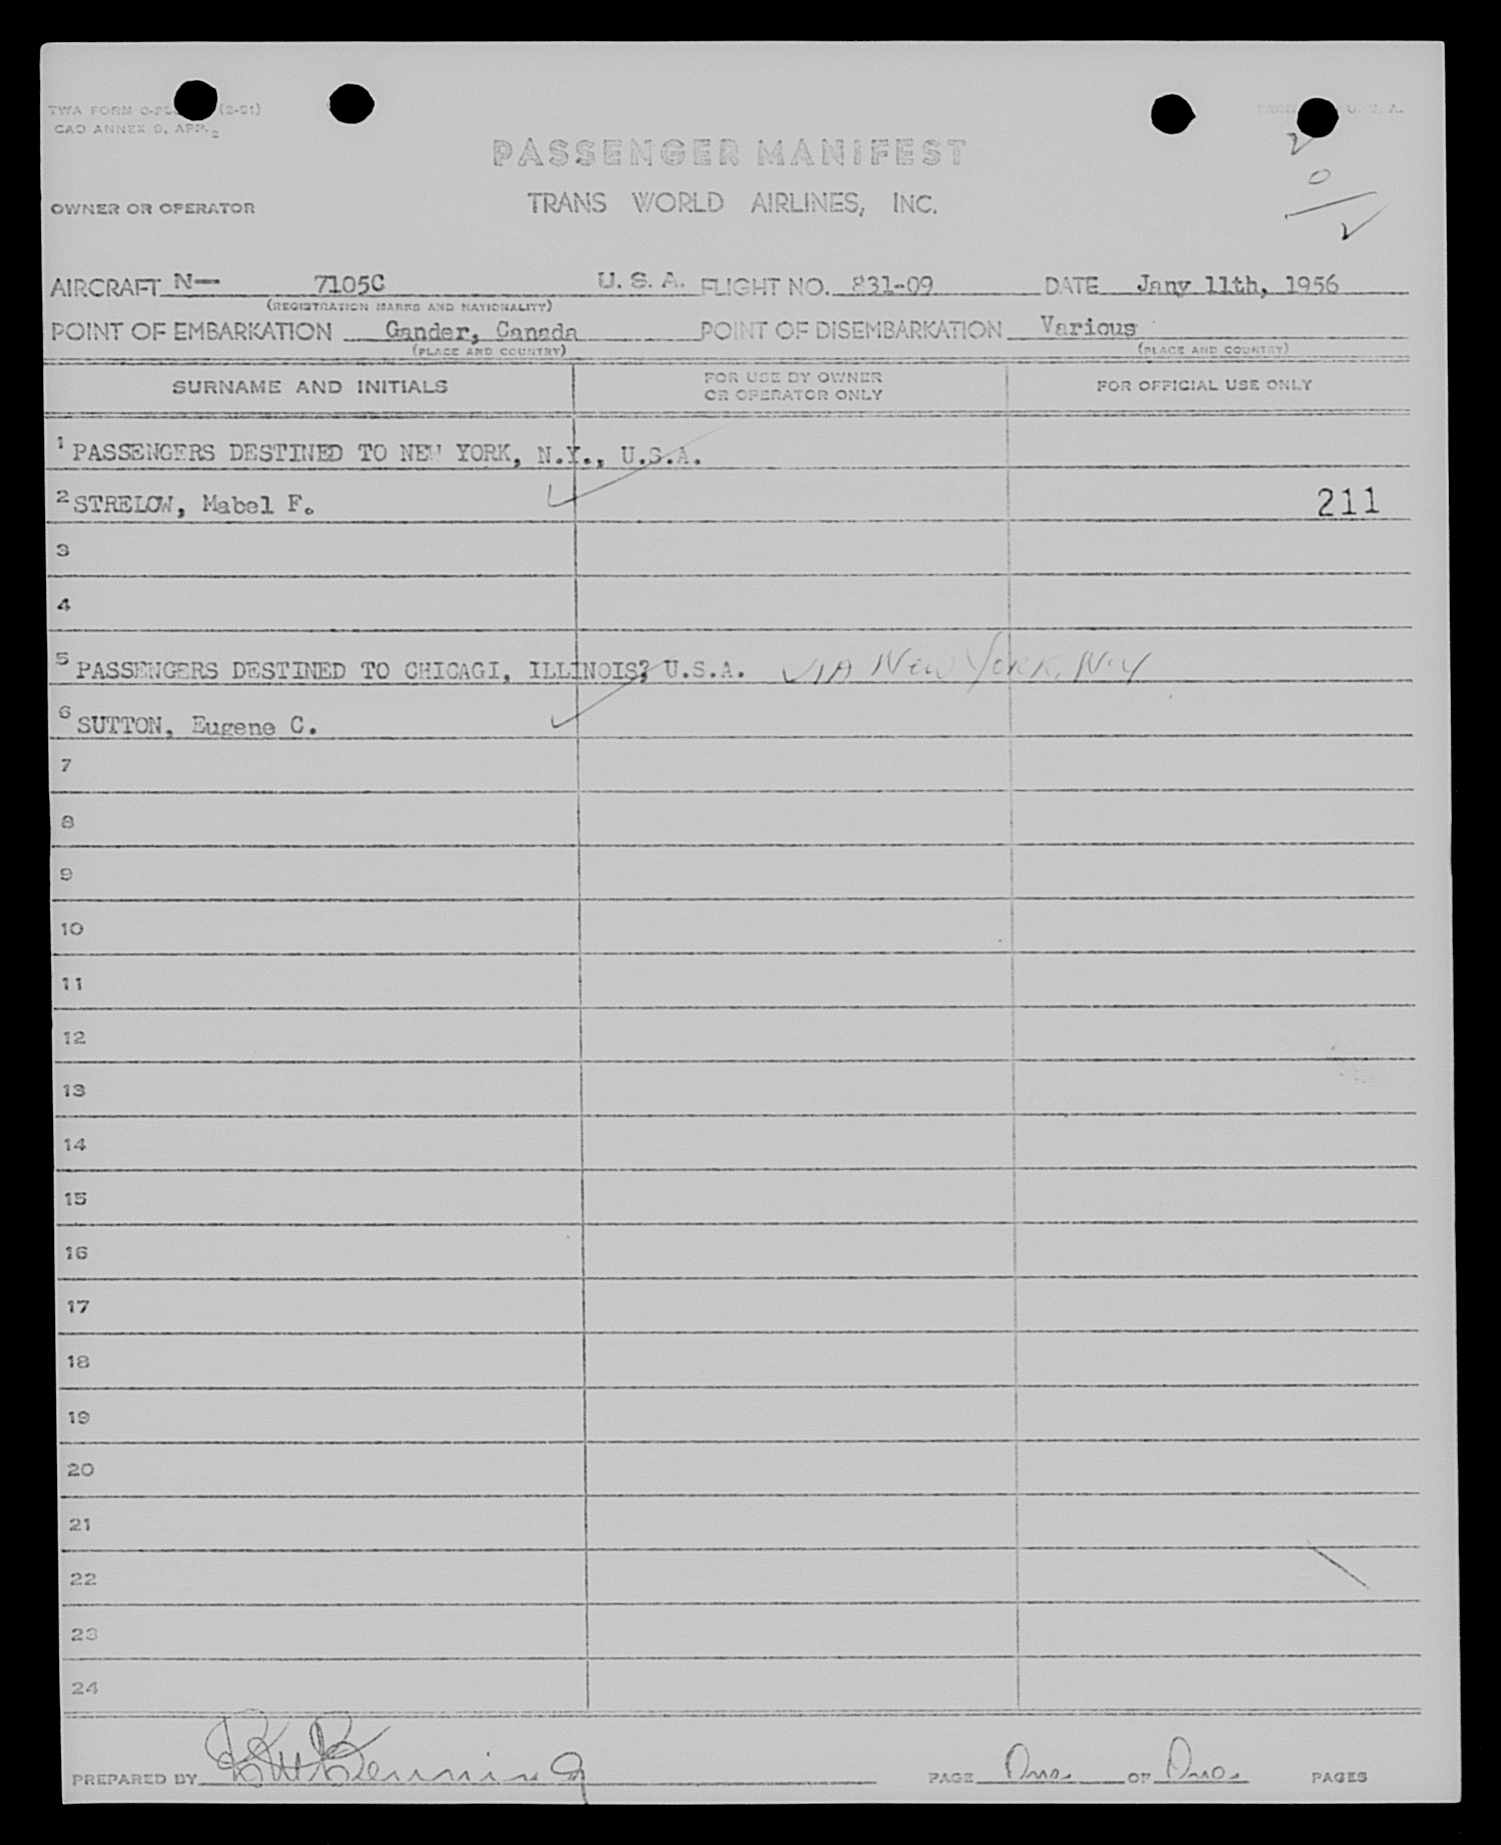 TWA FORM (2-51)
CAO ANNEX 9, APP. 2
U. S. A.
PASSENGER MANIFEST
2
0
2
OWNER OR OPERATOR TRANS WORLD AIRLINES, INC.
AIRCRAFT N— 7105C U. S. A. FLIGHT NO. 831-09 DATE Jany 11th, 1956
(REGISTRATION MARKS AND NATIONALITY)
POINT OF EMBARKATION Gander, Canada POINT OF DISEMBARKATION Various
(PLACE AND COUNTRY) (PLACE AND COUNTRY)
SURNAME AND INITIALS FOR USE BY OWNER OR OPERATOR ONLY FOR OFFICIAL USE ONLY
1 PASSENGERS DESTINED TO NEW YORK, N.Y., U.S.A.
2 STRELOW, Mabel F. 211
3
4
5 PASSENGERS DESTINED TO CHICAGI, ILLINOIS? U.S.A. VIA New York, N.Y
6 SUTTON, Eugene C.
7
8
9
10
11
12
13
14
15
16
17
18
19
20
21
22
23
24
PREPARED BY PAGE One OF One PAGES